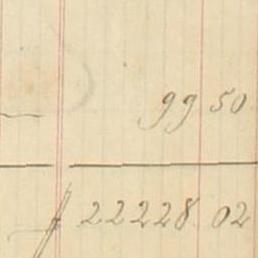 99 50
f 22228 02